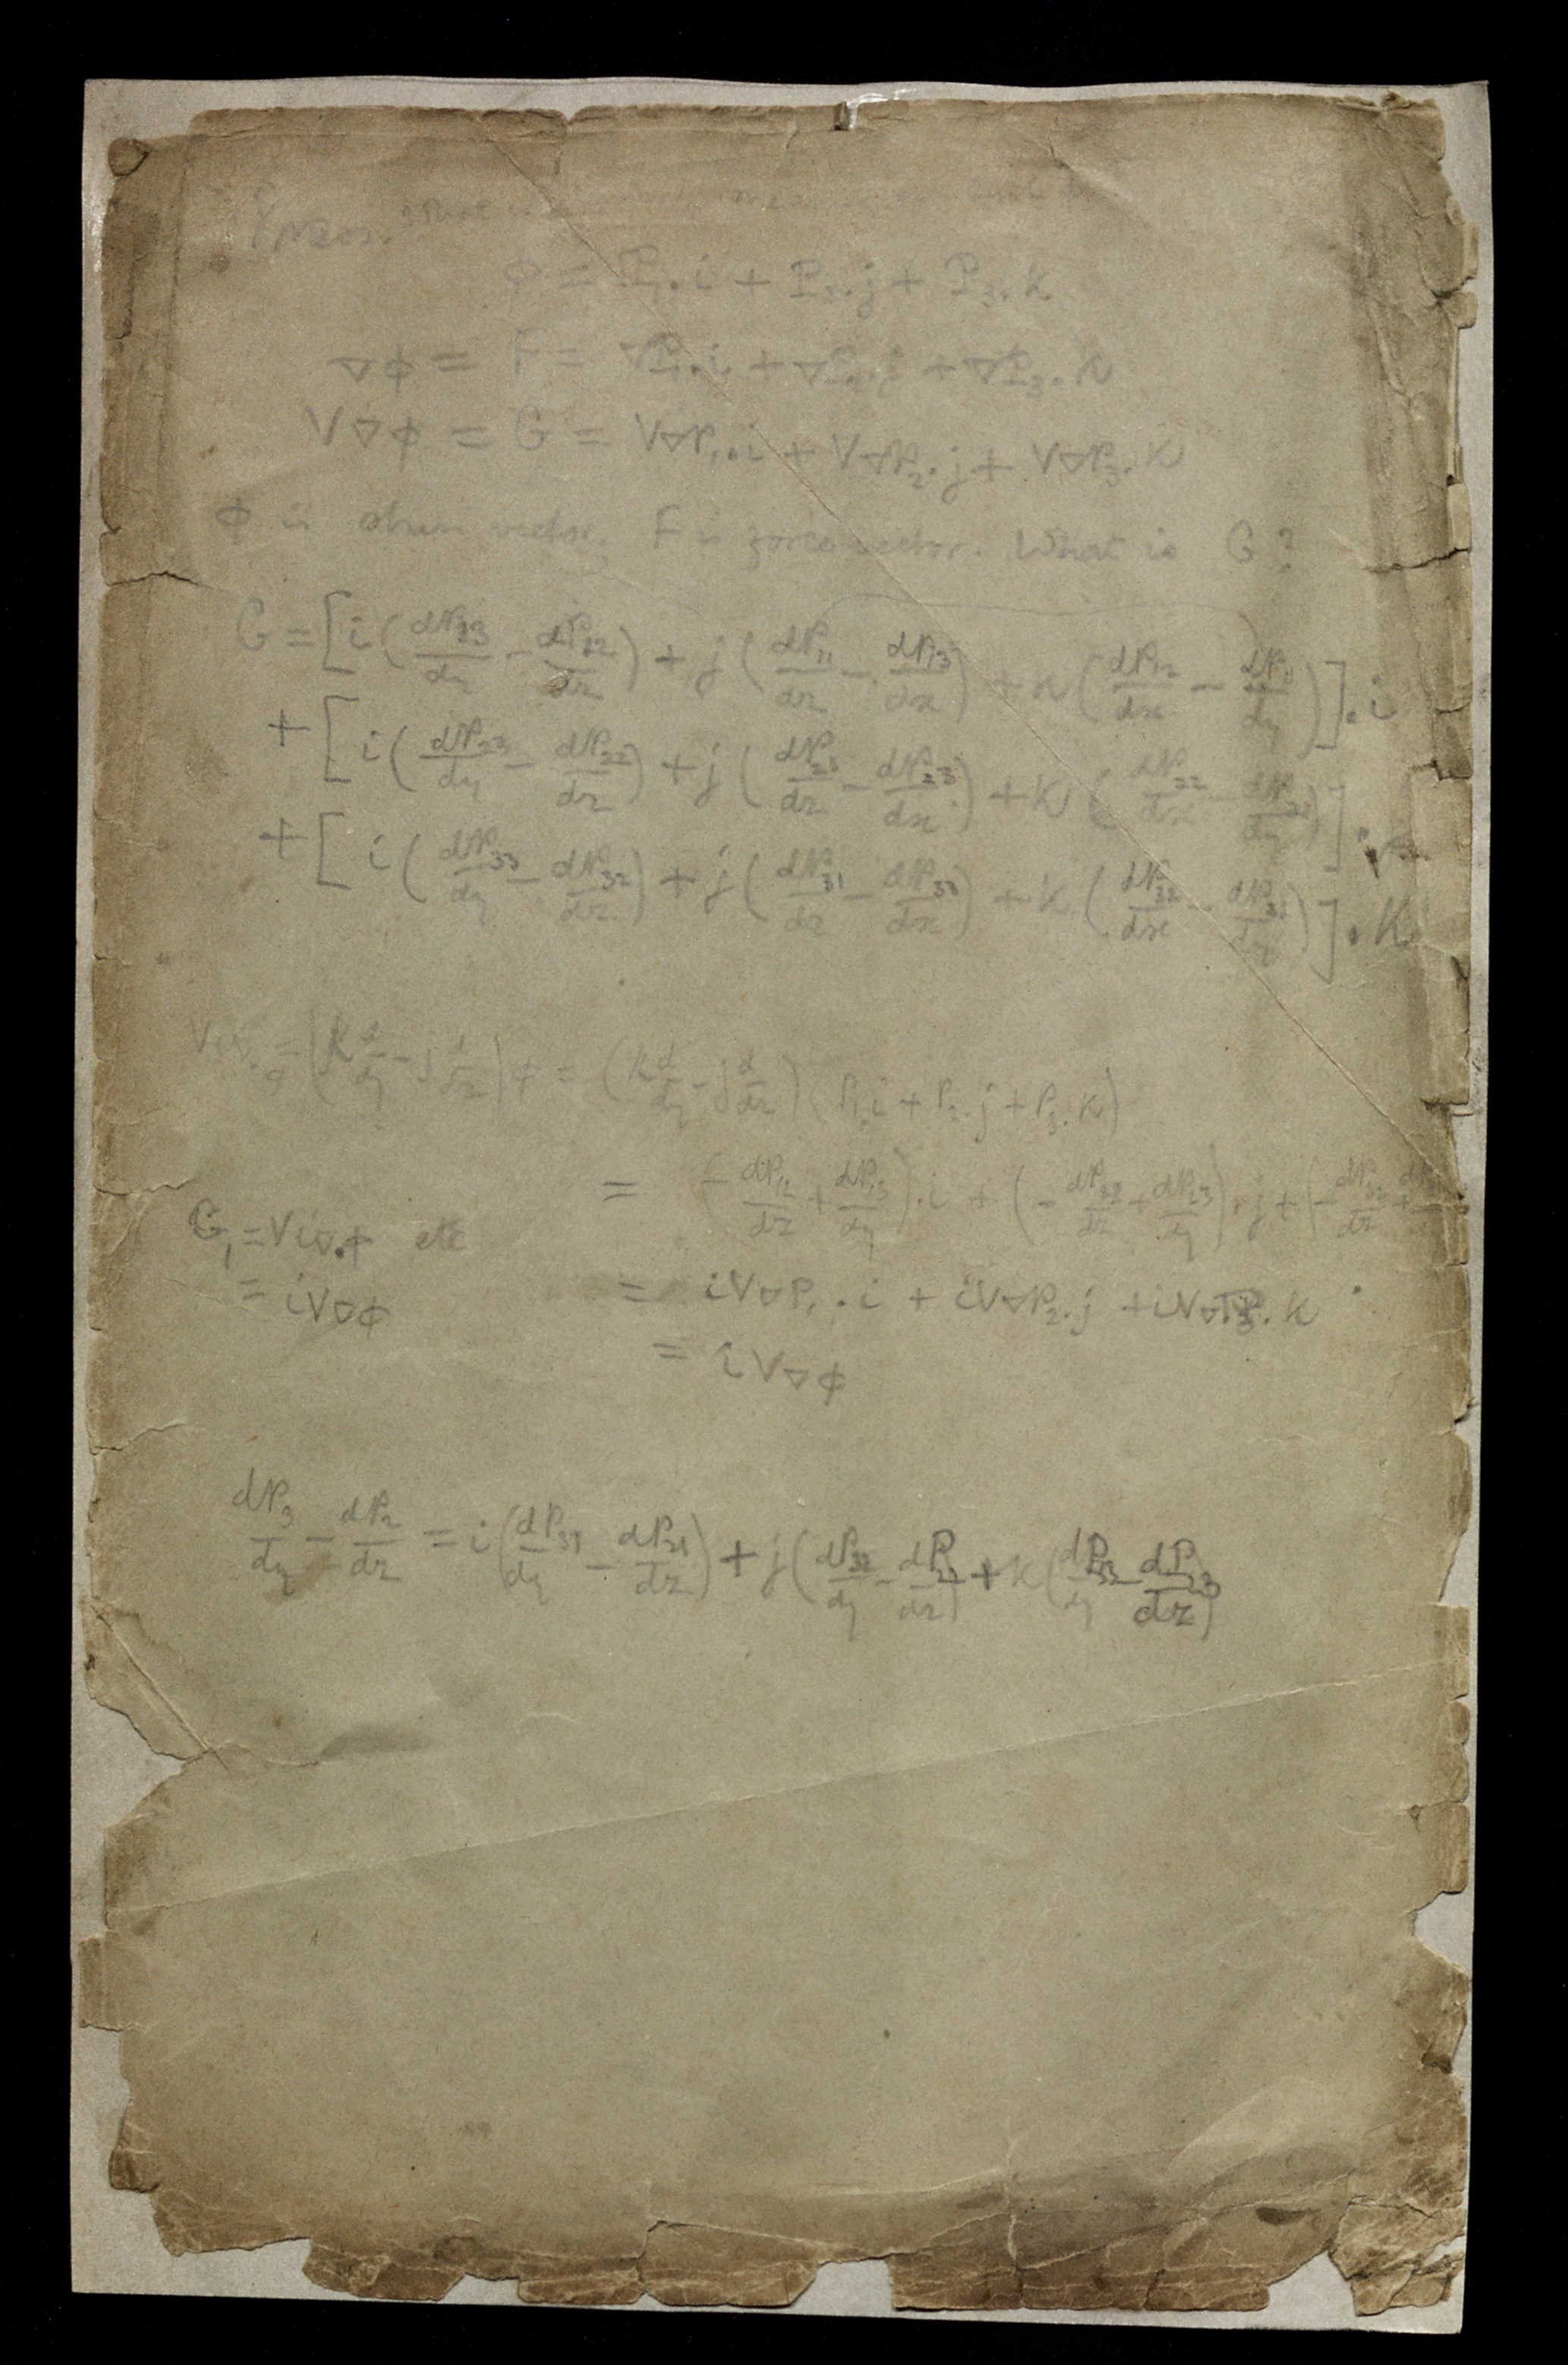 What
φ = P₁.i + P₂.j + P₃.k
∇φ = F = ∇P₁.i + ∇P₂.j + ∇P₃.k
V∇φ = G = V∇P₁.i + V∇P₂.j + V∇P₃.k
φ is vector. F is force vector. What is G?
G = [i(dP₁₃/dy - dP₁₂/dz) + j(dP₁₁/dz - dP₁₃/dx) + k(dP₁₂/dx - dP₁₁/dy)].i
+ [i(dP₂₃/dy - dP₂₂/dz) + j(dP₂₁/dz - dP₂₃/dx) + k(dP₂₂/dx - dP₂₁/dy)].j
+ [i(dP₃₃/dy - dP₃₂/dz) + j(dP₃₁/dz - dP₃₃/dx) + k(dP₃₂/dx - dP₃₁/dy)].k
= (k d/dy - j d/dz)φ = (k d/dy - j d/dz)(P₁.i + P₂.j + P₃.k)
= (-dP₁₂/dz + dP₁₃/dy).i + (-dP₂₂/dz + dP₂₃/dy).j + (-dP₃₂/dz +
G₁ = Vi∇.φ etc
= iV∇φ
= iV∇P₁.i + iV∇P₂.j + iV∇P₃.k
= iV∇φ
dP₃/dy - dP₂/dz = i(dP₃₁/dy - dP₂₁/dz) + j(dP₃₂/dy - dP₂₂/dz) + k(dP₃₃/dy - dP₂₃/dz)